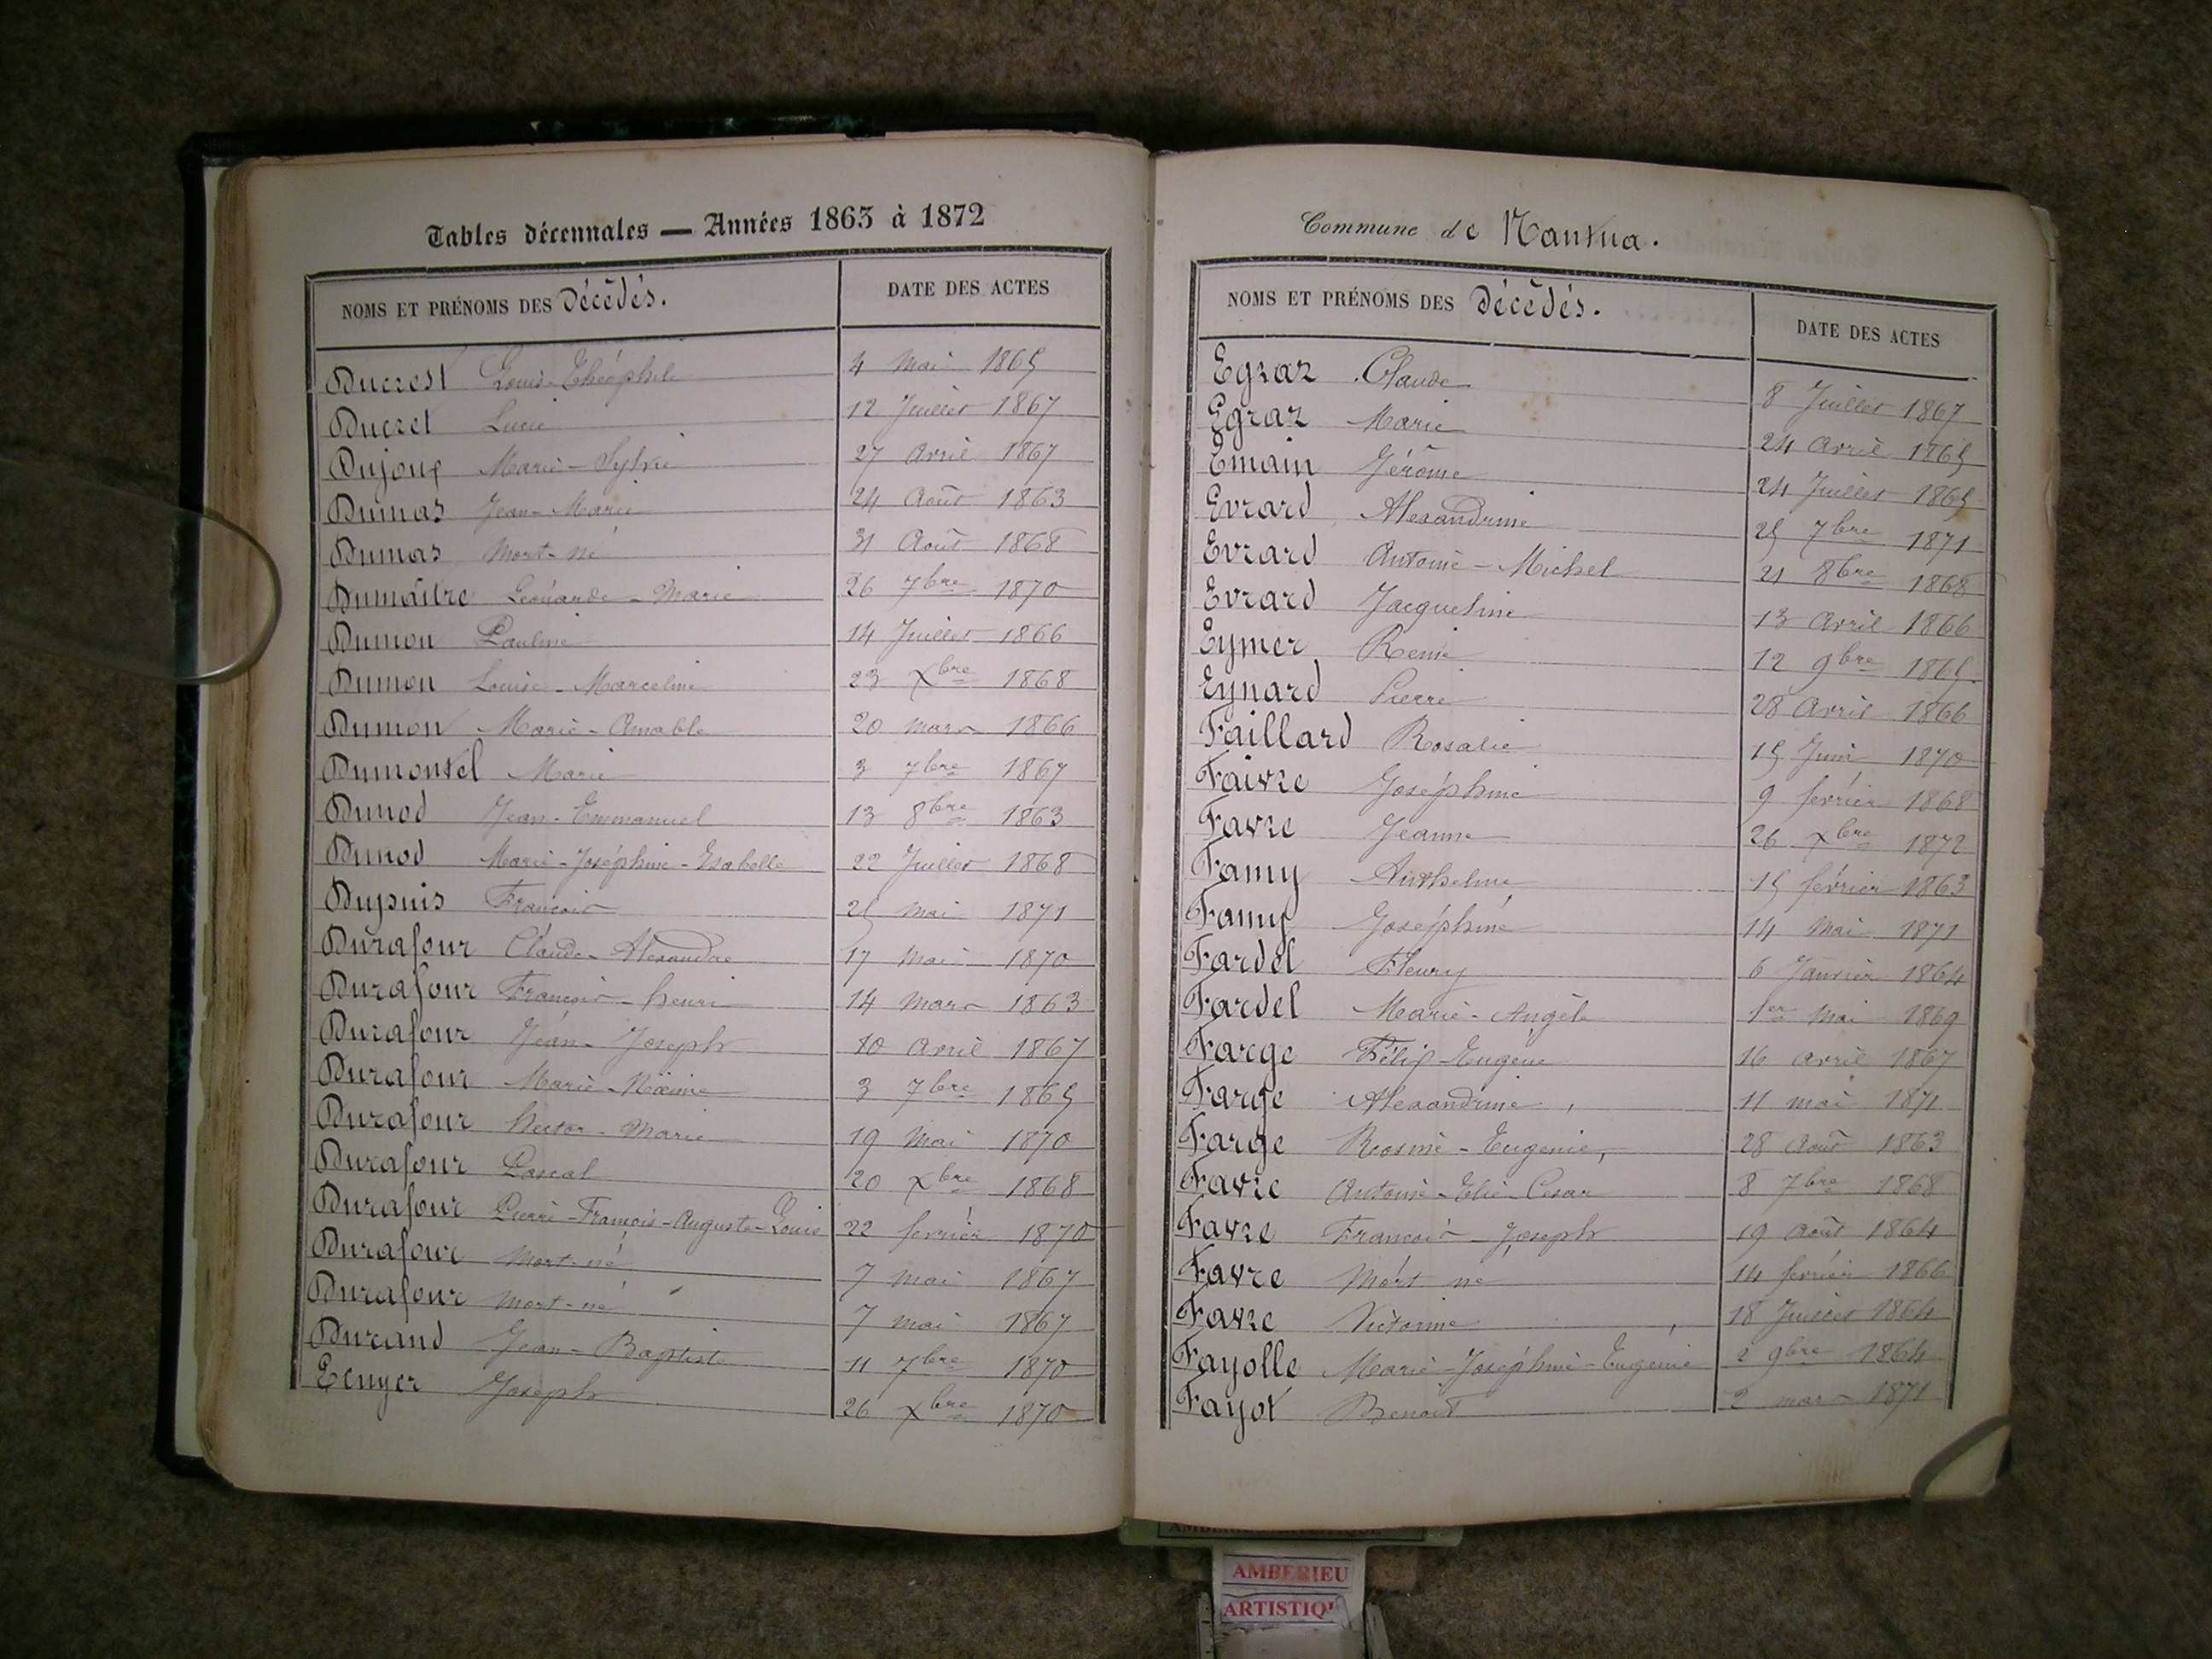 Tables décennales — Années 1863 à 1872
NOMS ET PRÉNOMS DES Décédés. DATE DES ACTES
Ducrest Louis-Théophile 4 Mai 1865
Ducret Lucie 12 Juillet 1867
Dujoux Marie-Sylvie 27 Avril 1867
Dumas Jean-Marie 24 Août 1863
Dumas Mort-né 31 Août 1868
Dumaître Léonarde-Marie 26 7bre 1870
Dumon Pauline 14 Juillet 1866
Dumon Louise-Marceline 23 Xbre 1868
Dumon Marie-Amable 20 mars 1866
Dumontel Marie 3 7bre 1867
Dunod Jean-Emmanuel 13 8bre 1863
Dunod Marie-Joséphine-Isabelle 22 Juillet 1868
Dupuis François 25 mai 1871
Durafour Claude-Alexandre 17 Mai 1870
Durafour François-henri 14 Mars 1863
Durafour Jean-Joseph 10 Avril 1867
Durafour Marie-Noémie 3 7bre 1865
Durafour hector-Marie 19 Mai 1870
Durafour Pascal 20 Xbre 1868
Durafour Pierre-François-Auguste-Louis 22 février 1870
Durafour Mort-né 7 mai 1867
Durafour Mort-né 7 mai 1867
Durand Jean-Baptiste 11 7bre 1870
Ecuyer Joseph 26 Xbre 1870
Commune de Nantua.
NOMS ET PRÉNOMS DES Décédés. DATE DES ACTES
Egraz Claude 8 Juillet 1867
Egraz Marie 24 Avril 1865
Emain Jérôme 24 Juillet 1865
Evrard Alexandrine 25 7bre 1871
Evrard Antoine-Michel 21 8bre 1868
Evrard Jacqueline 13 Avril 1866
Eymer Remie 12 9bre 1865
Eynard Pierre 28 Avril 1866
Faillard Rosalie 15 Juin 1870
Faivre Joséphine 9 février 1868
Favre Jeanne 26 Xbre 1872
Famy Anthelme 15 février 1863
Famy Joséphine 14 Mai 1871
Fardel Fleury 6 Janvier 1864
Fardel Marie-Angèle 1er Mai 1869
Farge Félix-Eugène 16 avril 1867
Farge Alexandrine 11 mai 1871
Farge Rosine-Eugénie 28 Août 1863
Favre Antoine-Elie-Cesar 8 7bre 1868
Favre François-Joseph 19 Août 1864
Favre Mort né 14 février 1866
Favre Victorine 18 Juillet 1864
Fayolle Marie-Joséphine-Eugénie 2 9bre 1864
Fayot Benoît 2 mars 1871
AMBERIEU
ARTISTIQ